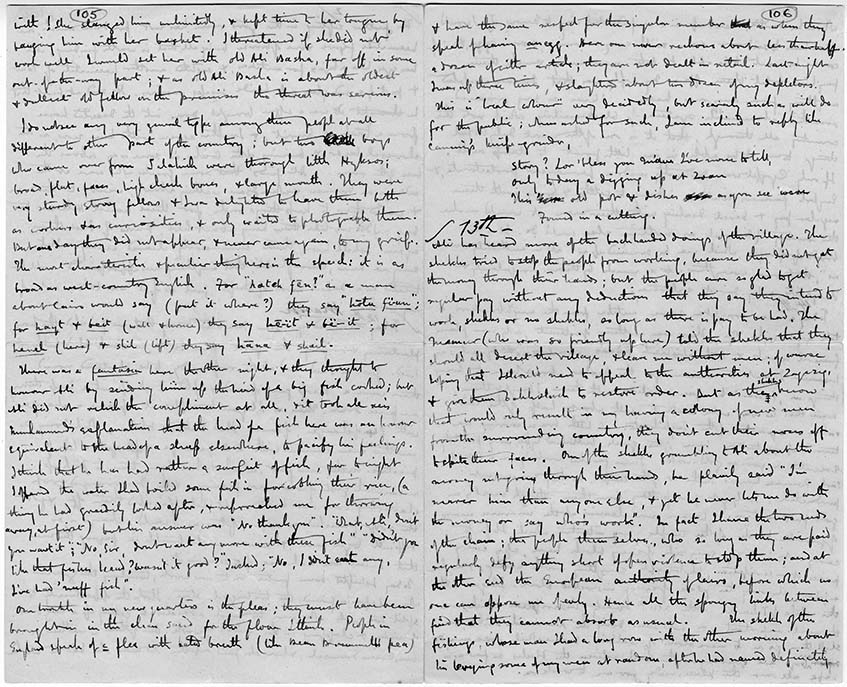 105
with! She slanged him unlimitedly, & kept time to her tongue by
banging him with her basket. I threatened if she did not
work well I would set her with old Ali Basha, far off in some
out-of-the-way part; & as old Ali Basha is about the oldest
& dullest old fellow on the premises the threat was serious.
I do not see any very general type among these people at all
different to other part of the country; but two boys
who came over from Salahieh were through little Hyksos;
broad, flat, faces, high cheek bones, & large mouth. They were
very steady, strong fellows, & I was delighted to have them both
as workers & as curiosities, & only waited to photograph them.
But one day they did not appear, & never came again, to my grief.
The most characteristic & peculiar thing here is the speech: it is as
broad as west-country English. For "hatch fên?" as a man
about Cairo would say (put it where?) they say
for hayt & beit (wall & house) they say & ; for
(here) & shil (lift) they say & shail.
There was a fantasia here the other night, & they thought to
honour Ali by sending him up the head of a big fish cooked; but
Ali did not relish the compliment at all, & it took all
Muhammad's explanation that the head of a fish here was an honour
equivalent to the head of a sheep elsewhere, to pacify his feelings.
I think that he has had rather a surfeit of fish, for tonight
I offered the water I had boiled some fish in for cooking their rice, (a
thing he had greedily looked after, & reproached me for throwing
away, at first) but his answer was "No thank you". "What, Ali, don't
you want it"; "No, Sir, don't want any more with these fish" "didn't you
like that fishes head? wasn't it good?" I asked; "No, I don't eat any,
I've had 'nuff fish".
One trouble in my new quarters is the fleas; they must have been
brought in in the clean sand for the floor I think. People in
England speak of a flea with bated breath (like Beau Brummell's pea)
106
& have the same respect for the singular number as when they
speak of having an egg. Here one never reckons about less than half
a dozen of either article; they are not dealt in retail. Last night
I was up three times, & slaughtered about two dozen of my depletors.
This is local colour very decidedly, but scarcely such as will do
for the public; when asked for such, I am inclined to reply like
Canning's knife grinder,
Story? Lor' bless you I've none to tell,
Only to day a digging up at Zoan
This old pots & dishes as you see were
Found in a cutting.
13th —
Ali has heard more of the backhanded doings of the village. The
sheikhs tried to stop the people from working, because they did not get
the money through their hands; but the people are so glad to get
regular pay without any deduction that they say they intend to
work, sheikhs or no sheikhs, as long as there is pay to be had. The
(who was so friendly up here) told the sheikhs that they
should all desert the village, & leave me without men; of course
hoping that I should need to appeal to the authorities at Zagazig,
& give them bakhshish to restore order. But as they sheikhs know
that would only result in my having a colony of new men
from the surrounding country, they don't cut their noses off
to spite their faces. One of the sheikhs grumbling to Ali about the
money not going through their hands, he plainly said "I'm
nearer him than anyone else, & yet he never lets me do with
the money or say who's work". In fact I have the two ends
of the chain; the people themselves, who so long as they are paid
regularly defy anything short of open violence to stop them; and at
the other end the European authority of Davies, before which no
one can oppose me openly. Hence all the spongy links between
find that they cannot absorb as usual. The sheikh of the
fishings, whose man I had a long row with the other morning about
his bagging some of my men at random after he had named definitely